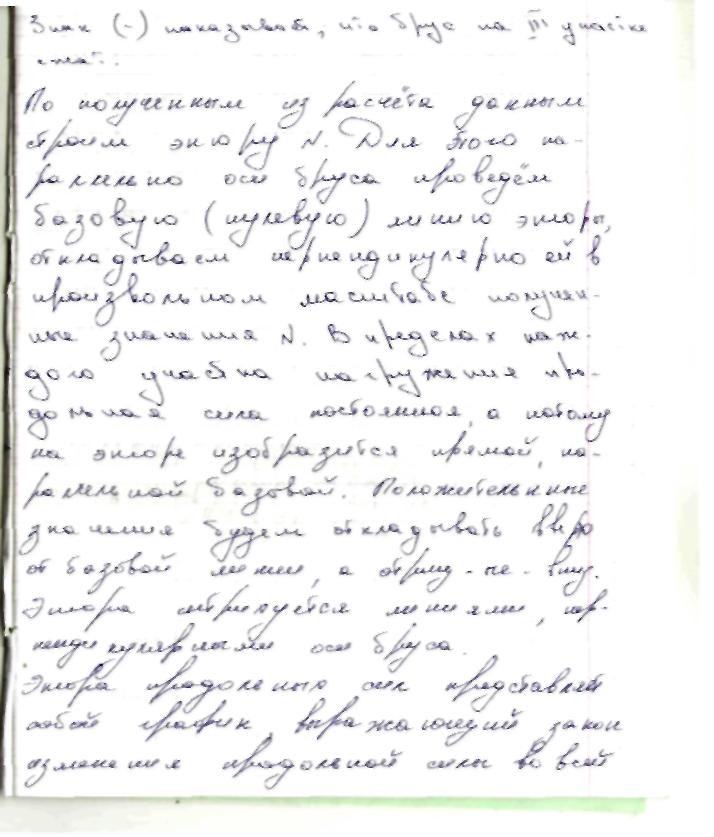 Знак (-) показывает, что брус на III участке
сжат.
По полученным из расчёта данным
строим эпюру N. Для этого па-
ралельно оси бруса проведём
базовую (нулевую) линию эпюры,
откладываем перпендикулярно ей в
произвольном масштабе получен-
ные значения N. В пределах каж-
дого участка нагружения про-
дольная сила постоянная, а потому
на эпюре изобразится прямой, па-
ралельной базовой. Положительнные
значения будем откладывать вверх
от базовой линии, а отриц-ые - вниз.
Эпюра штрихуется линиями, пер-
пендикулярными оси бруса.
Эпюра продольных сил представляет
собой график, выражающий закон
изменения продольной силы во всей